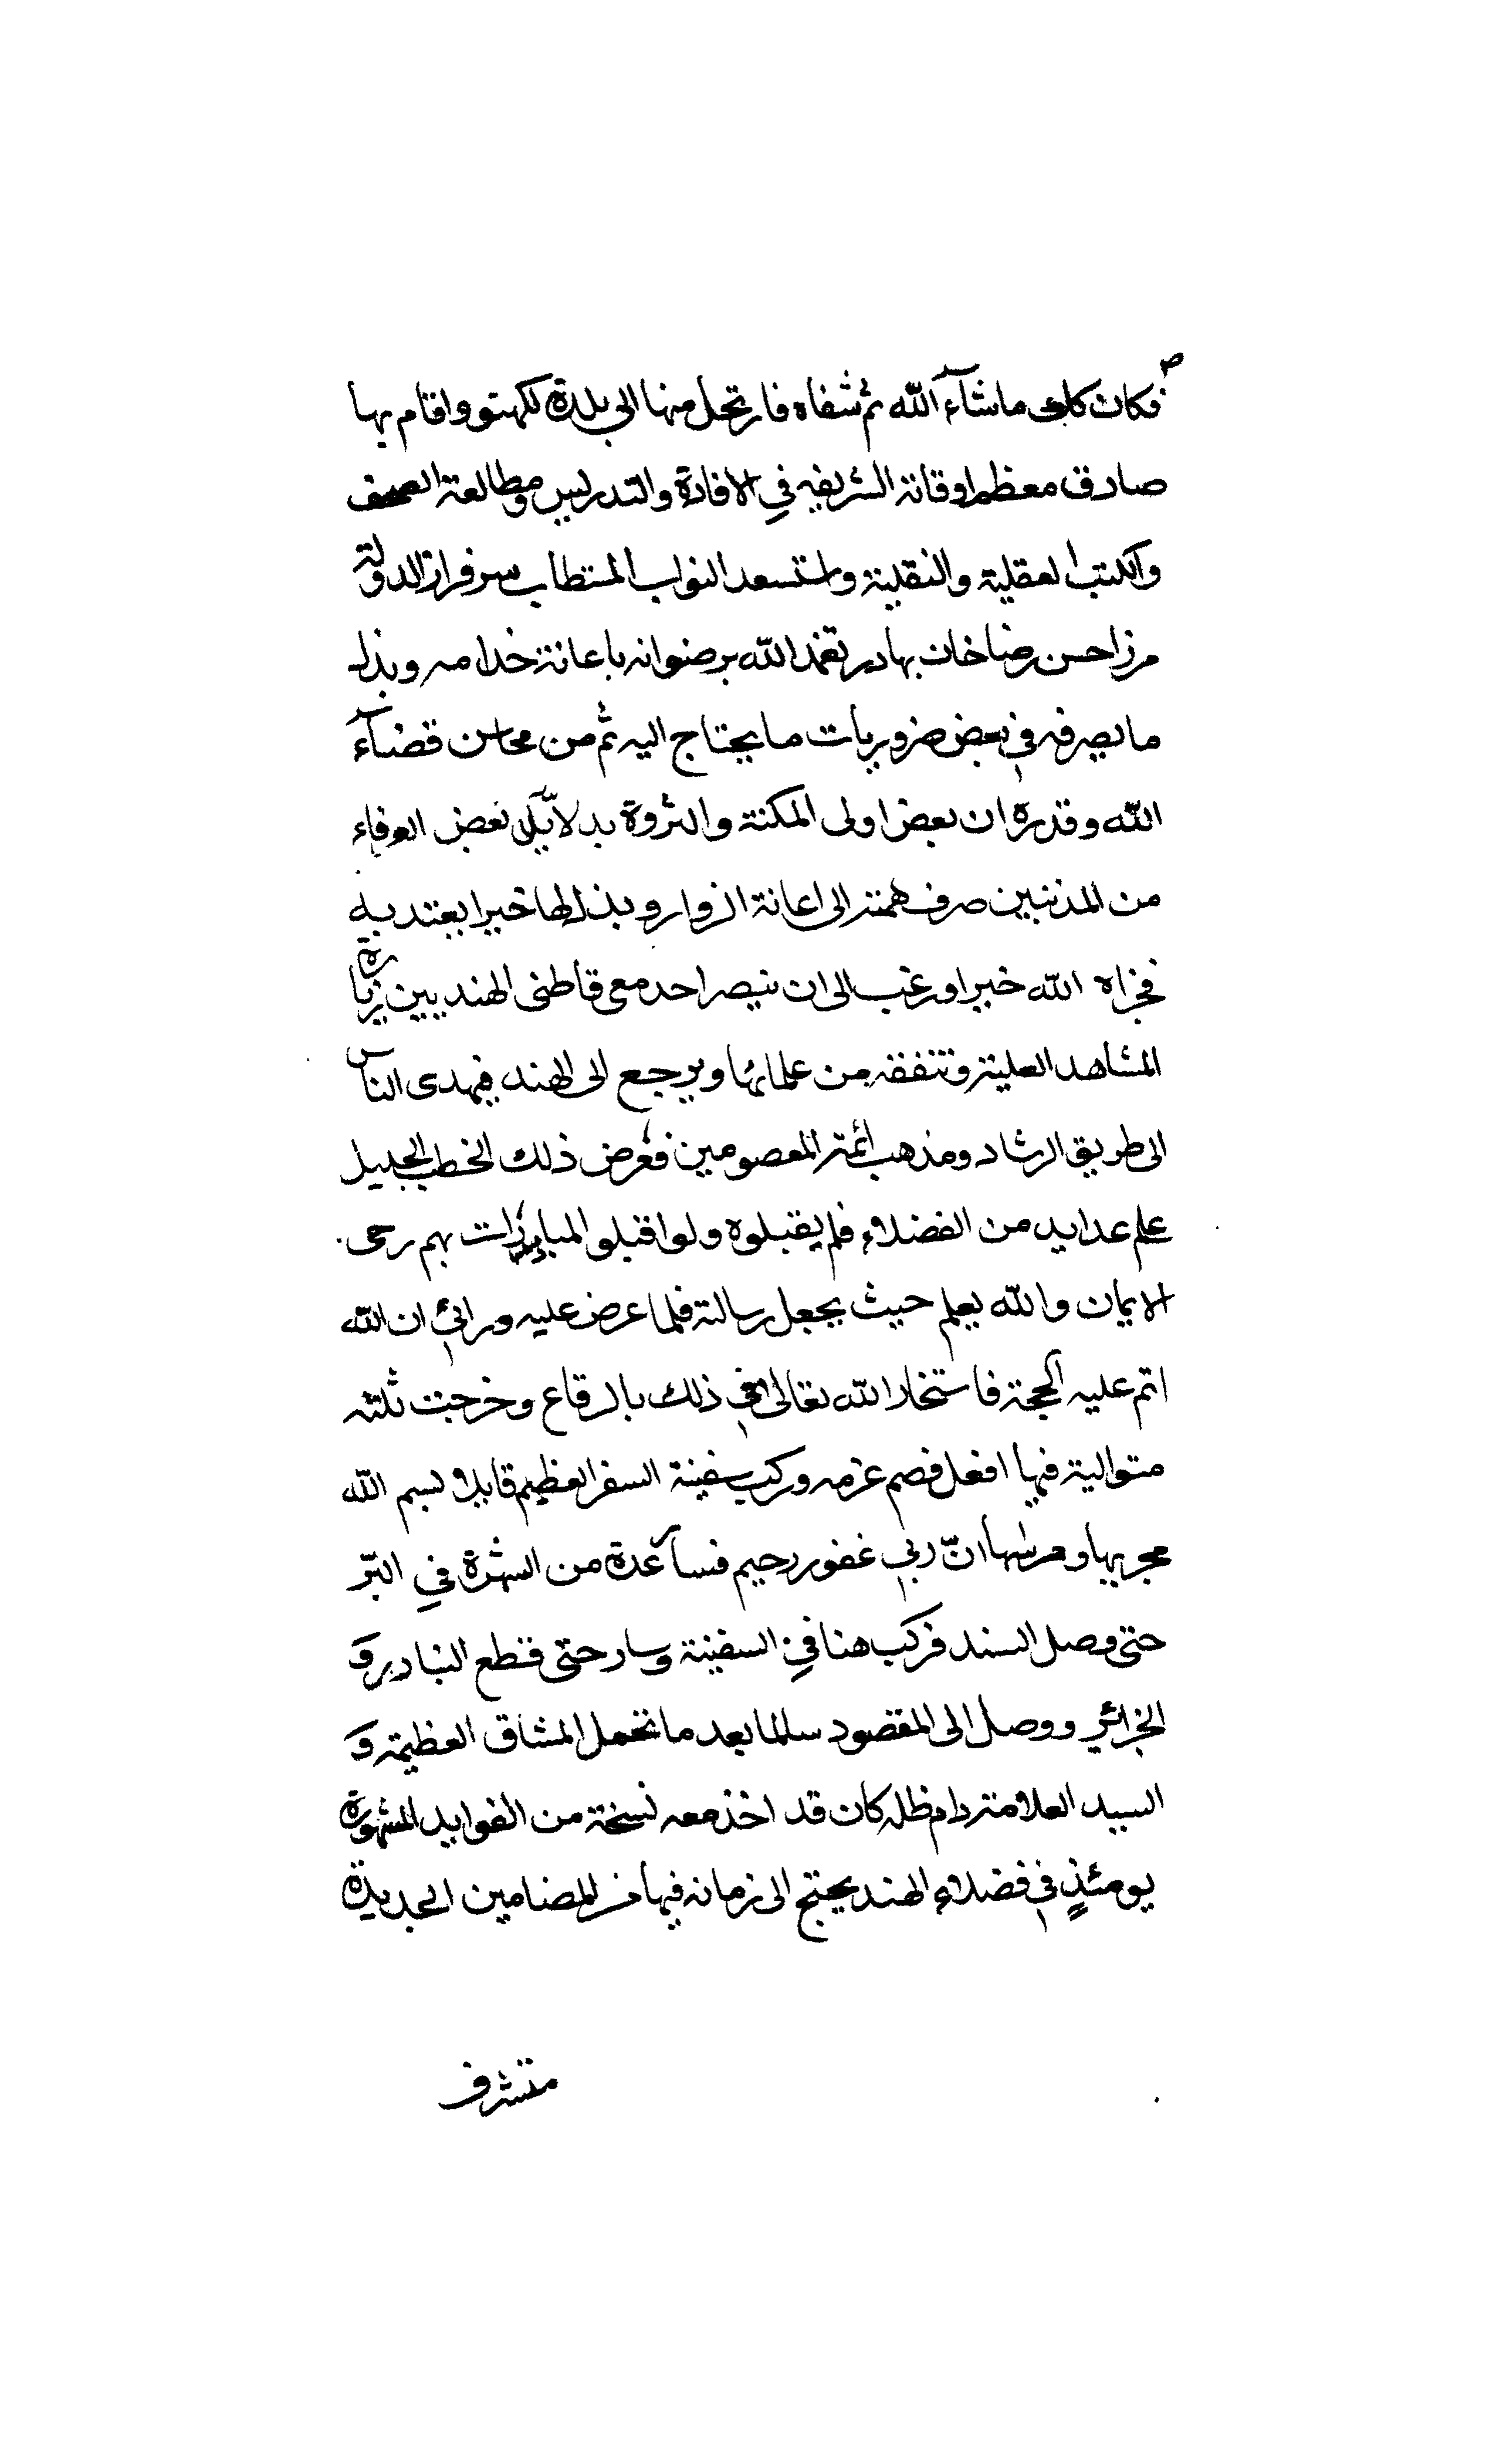 فكان كلوى ماشآء الله ثم شفاه فارتحل منها الى بلدة لكهنو واقام بها
صارف معظم اوقاته الشريفه في الافادة والتدريس ومطالعة الصحف
والكتب العقلية والنقلية واستسعد النواب المستطاب سرفراز الدولة
مرزا حسن رضا خان بهادر تغمد الله برضوانه باعانة خدامه وبذل
ما يصرفه في بعض ضروريات ما يحتاج اليه ثم من محاسن قضآء
الله وقدره ان بعض اولى المكنة والثروة بدلايل بعض العرفاء
من المذنبين صرف همته الى اعانة الزوار وبذل لها خيرا يعتد به
فجزاه الله خيرا ورغب الى ان يتيصر احد مع قاطنى الهنديين بزيارة
المشاهد العلية وتتفقه من علمائها ويرجع الى الهند فيهدى الناس
الى طريق الرشاد ومذهب ائمة المعصومين فعرض ذلك الخطب الجليل
على عدايد من الفضلاء فلم يقبلوه ولو اقبلوا لما دارت بهم رحى
الايمان والله يعلم حيث يجعل رسالته فلما عرض عليه وراى ان الله
اتم عليه الحجة فاستخار الله تعالى في ذلك بالرقاع وخرجت ثلثه
متوالية فيها افعل فصمم عزمه وركب سفينة السفر العظيم قايلا بسم الله
مجريها ومرسها انّ ربي غفور رحيم فسآ عدة من الشهرة في البرّ
حتى وصل السند فركب هنا في السفينة وسار حتى قطع البنادر و
الجزائر ووصل الى المقصود سالما بعد ما تحمل المشاق العظيمة و
السيد العلامة دام ظله كان قد اخذ معه نسخة من الفوايد المشهورة
يومئذٍ في فضلاء الهند يحتج الى زمانه فيها من المضامين الجديدة
متشرف